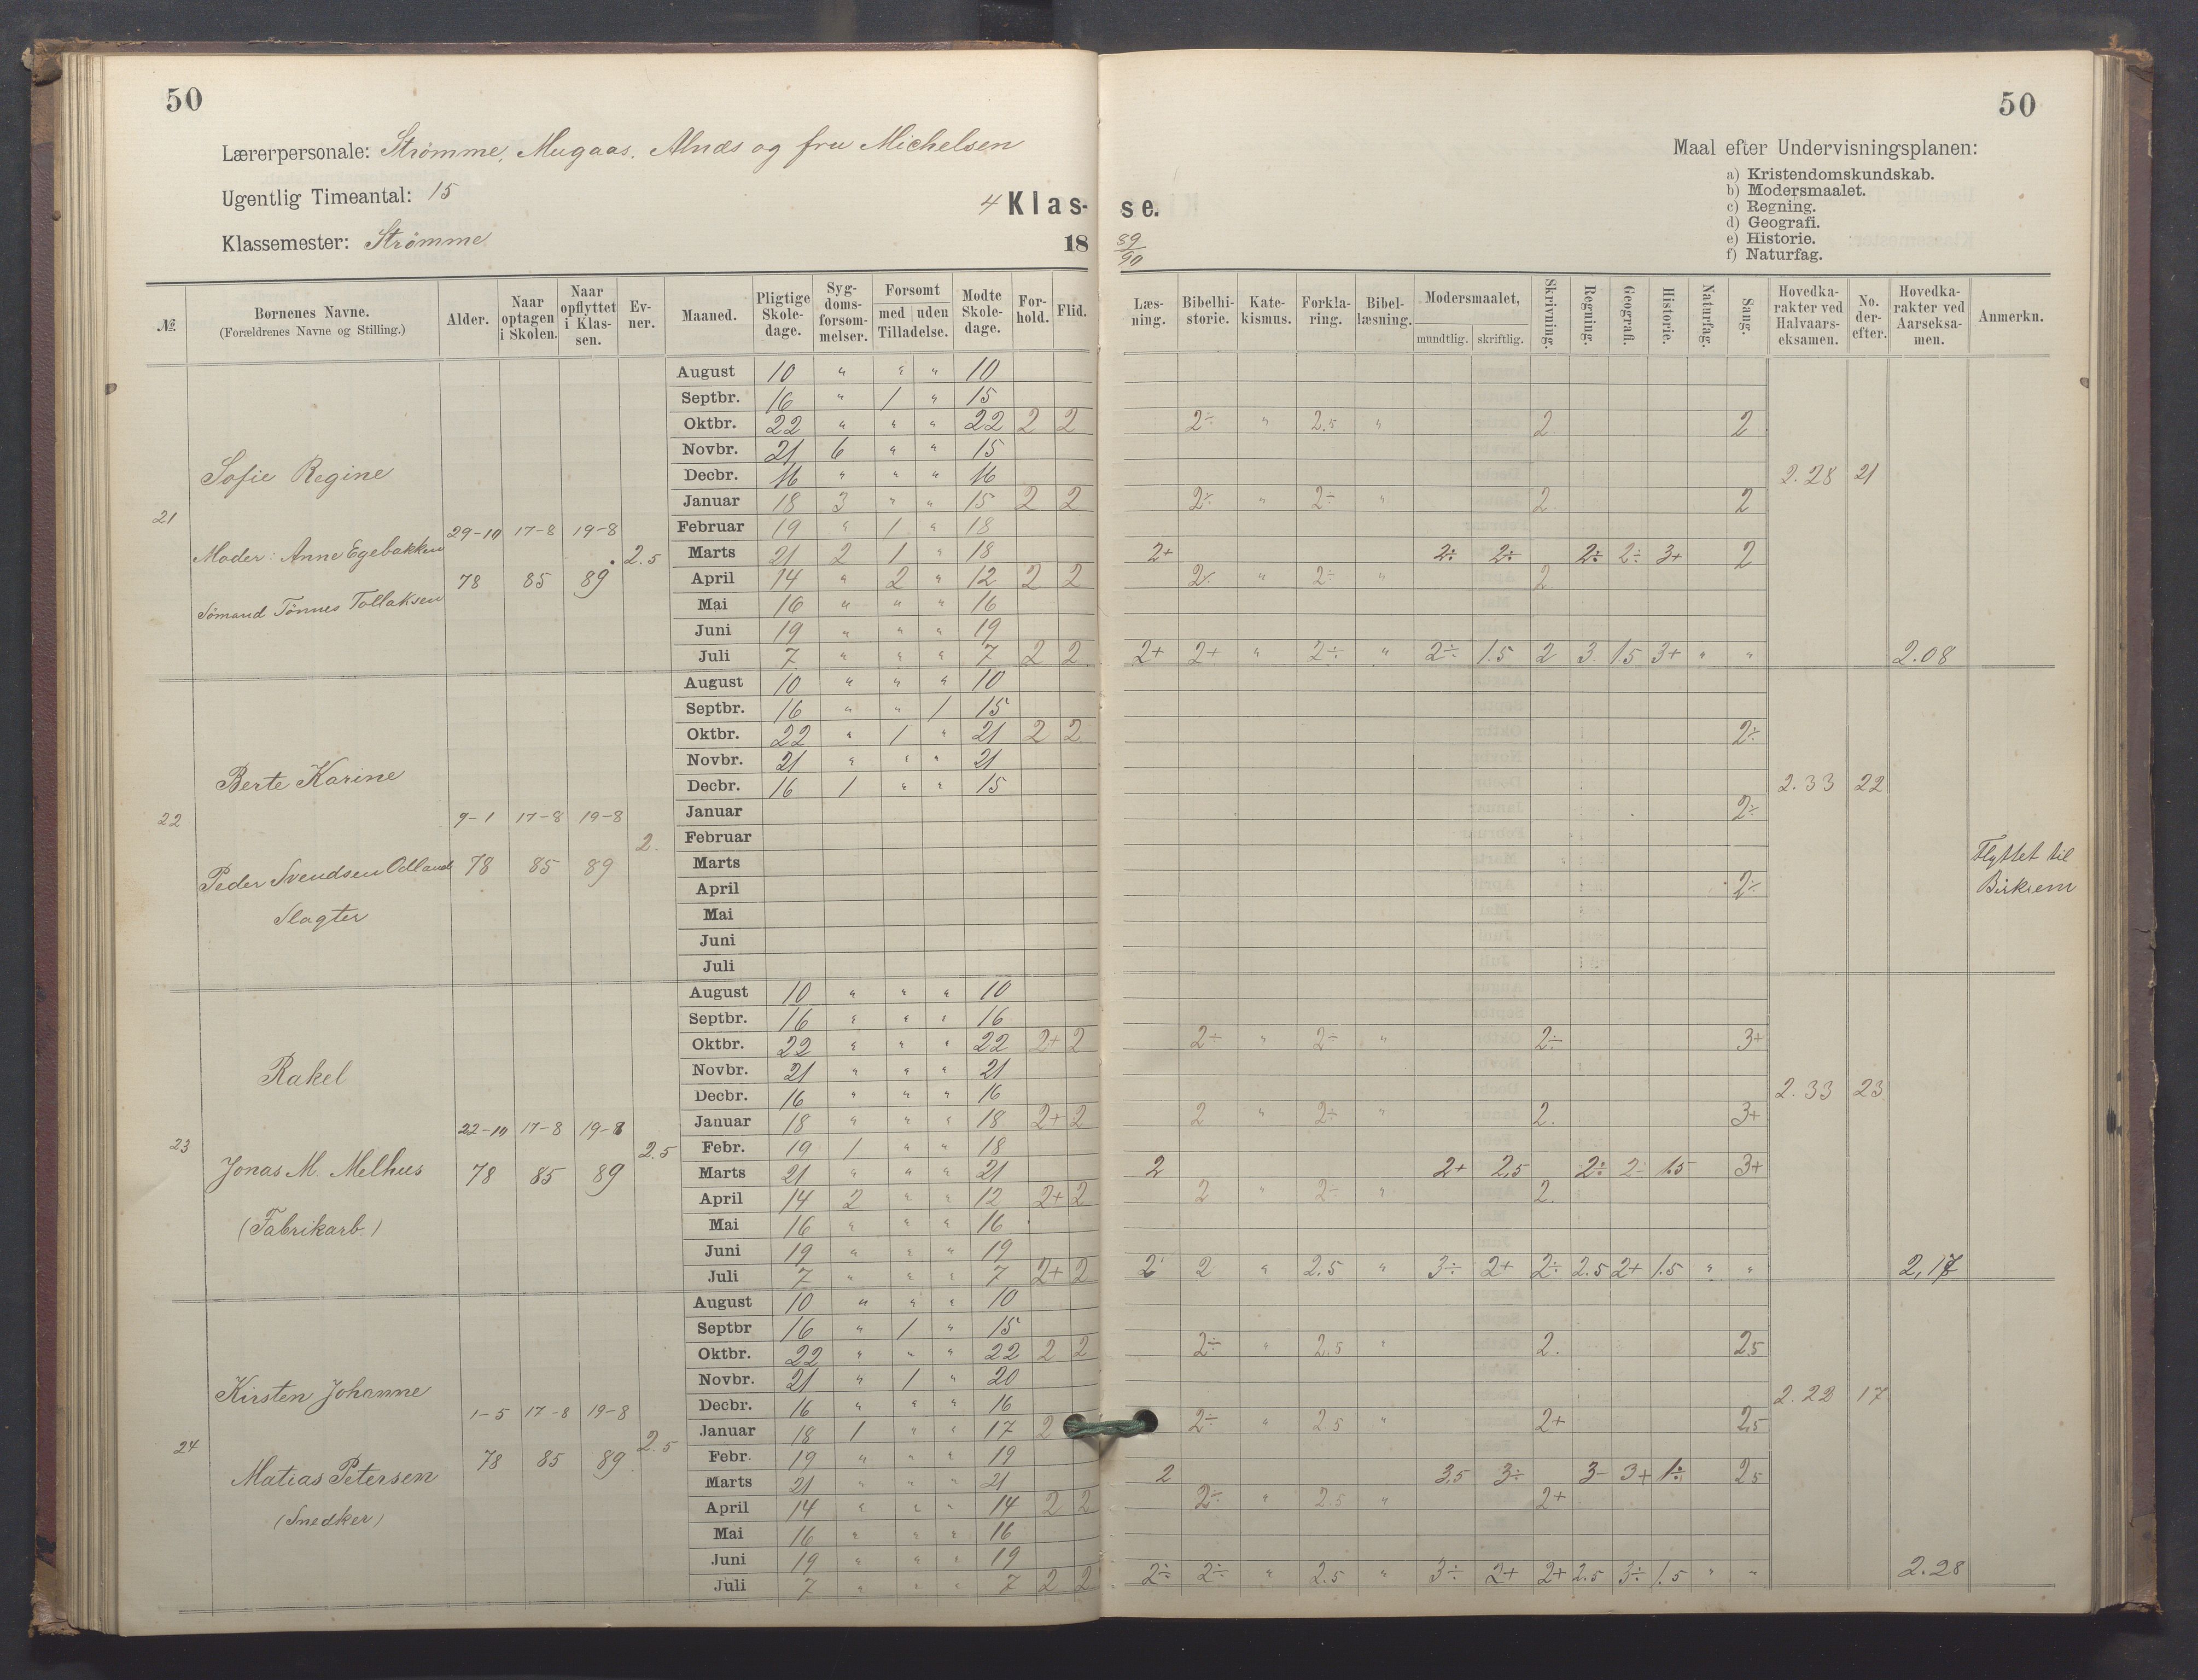 50
50
Lærerpersonale: Strømme, Mugaas, Alnæs og fru Michelsen
Ugentlig Timeantal: 15
Klassemester: Strømme
4 Klas- se.
18 89/90
Maal efter Undervisningsplanen:
a) Kristendomskundskab.
b) Modersmaalet.
c) Regning.
d) Geografi.
e) Historie.
f) Naturfag.
№ Børnenes Navne. (Forældrenes Navne og Stilling.) Alder. Naar optagen i Skolen. Naar opflyttet i Klassen. Evner. Maaned. Pligtige Skoledage. Sygdomsforsømmelser. Forsømt med uden Tilladelse. Mødte Skoledage. Forhold. Flid. Læsning. Bibelhistorie. Katekismus. Forklaring. Bibellæsning. Modersmaalet, mundtlig. skriftlig. Skrivning. Regning. Geografi. Historie. Naturfag. Sang. Hovedkarakter ved Halvaarseksamen. No. derefter. Hovedkarakter ved Aarseksamen. Anmerkn.
21
Sofie Regine
Moder: Anne Egebakken
Sømand Tønnes Tollaksen
29-10 17-8 19-8
78 85 89
2.5
August 10 " " " 10
Septbr. 16 " 1 " 15
Oktbr. 22 " " " 22 2 2 2÷ " 2.5 " 2 2
Novbr. 21 6 " " 15
Decbr. 16 " " " 16 2.28 21
Januar 18 3 " " 15 2 2 2÷ " 2÷ " 2 2
Februar 19 " 1 " 18
Marts 21 2 1 " 18 2+ 2÷ 2÷ 2÷ 2÷ 3+ 2
April 14 " 2 " 12 2 2 2÷ " 2÷ " 2
Mai 16 " " " 16
Juni 19 " " " 19
Juli 7 " " " 7 2 2 2+ 2+ " 2÷ " 2÷ 1.5 2 3 1.5 3+ " " 2.08
22
Berte Karine
Peder Svendsen Odland
Slagter
9-1 17-8 19-8
78 85 89
2.
August 10 " " " 10
Septbr. 16 " " 1 15
Oktbr. 22 " 1 " 21 2 2 2÷
Novbr. 21 " " " 21
Decbr. 16 1 " " 15 2.33 22
Januar 2÷
Februar
Marts
April 2÷
Mai
Juni
Juli
Flyttet til
Birkrem
23
Rakel
Jonas M. Melhus
(Fabrikarb.)
22-10 17-8 19-8
78 85 89
2.5
August 10 " " " 10
Septbr. 16 " " " 16
Oktbr. 22 " " " 22 2+ 2 2÷ " 2÷ " 2÷ 3+
Novbr. 21 " " " 21
Decbr. 16 " " " 16 2.33 23
Januar 18 " " " 18 2+ 2 2 " 2÷ " 2. 3+
Febr. 19 1 " " 18
Marts 21 " " " 21 2 2+ 2,5 2÷ 2÷ 1.5 3+
April 14 2 " " 12 2+ 2 2 " 2÷ " 2.
Mai 16 " " " 16
Juni 19 " " " 19
Juli 7 " " " 7 2+ 2 2 2 " 2.5 " 3÷ 2+ 2÷ 2.5 2+ 1.5 " " 2,17
24
Kirsten Johanne
Matias Petersen
(Snedker)
1-5 17-8 19-8
78 85 89
2.5
August 10 " " " 10
Septbr 16 " 1 " 15
Oktbr. 22 " " " 22 2 2 2÷ " 2.5 " 2. 2.5
Novbr. 21 " 1 " 20
Decbr. 16 " " " 16 2.22 17
Januar 18 1 " " 17 2 2÷ " 2.5 " 2+ 2,5
Febr. 19 " " " 19
Marts 21 " " " 21 2 3,5 3÷ 3- 3+ 1÷ 2.5
April 14 " " " 14 2 2 2÷ " 2.5 " 2+
Mai 16 " " " 16
Juni 19 " " " 19
Juli 7 " " " 7 2 2 2÷ 2÷ " 2.5 " 3÷ 2+ 2+ 2.5 3÷ 1.5 " " 2.28